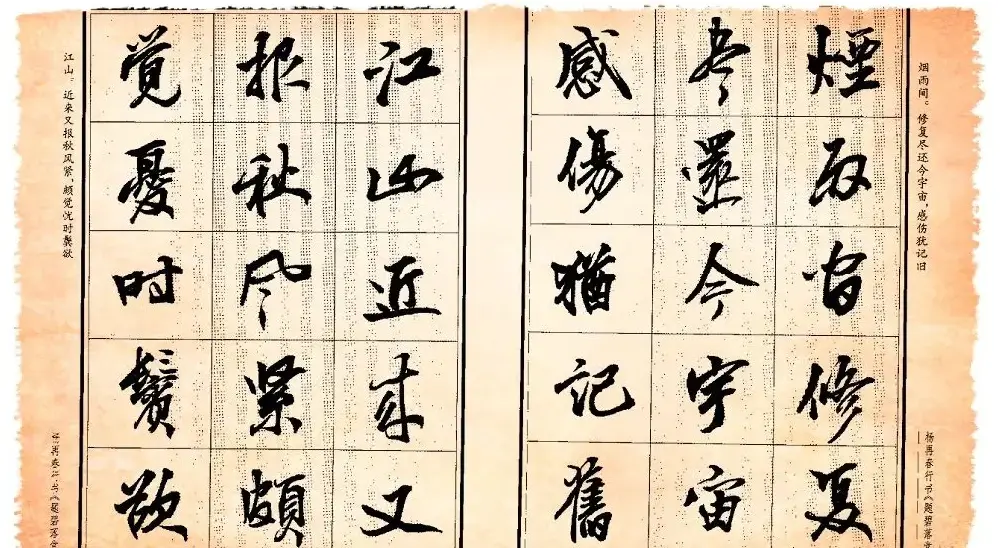 烟雨间。修复尽还今宇宙,感伤犹记旧
杨再春行书《题碧落
煙雨间修复
尽還今宇宙
感傷猶記舊
江山近来又
报秋风紧頗
觉憂时鬢欲
江山。近来又报秋风紧,颇觉忧时鬓欲
杨再春行书《题碧落